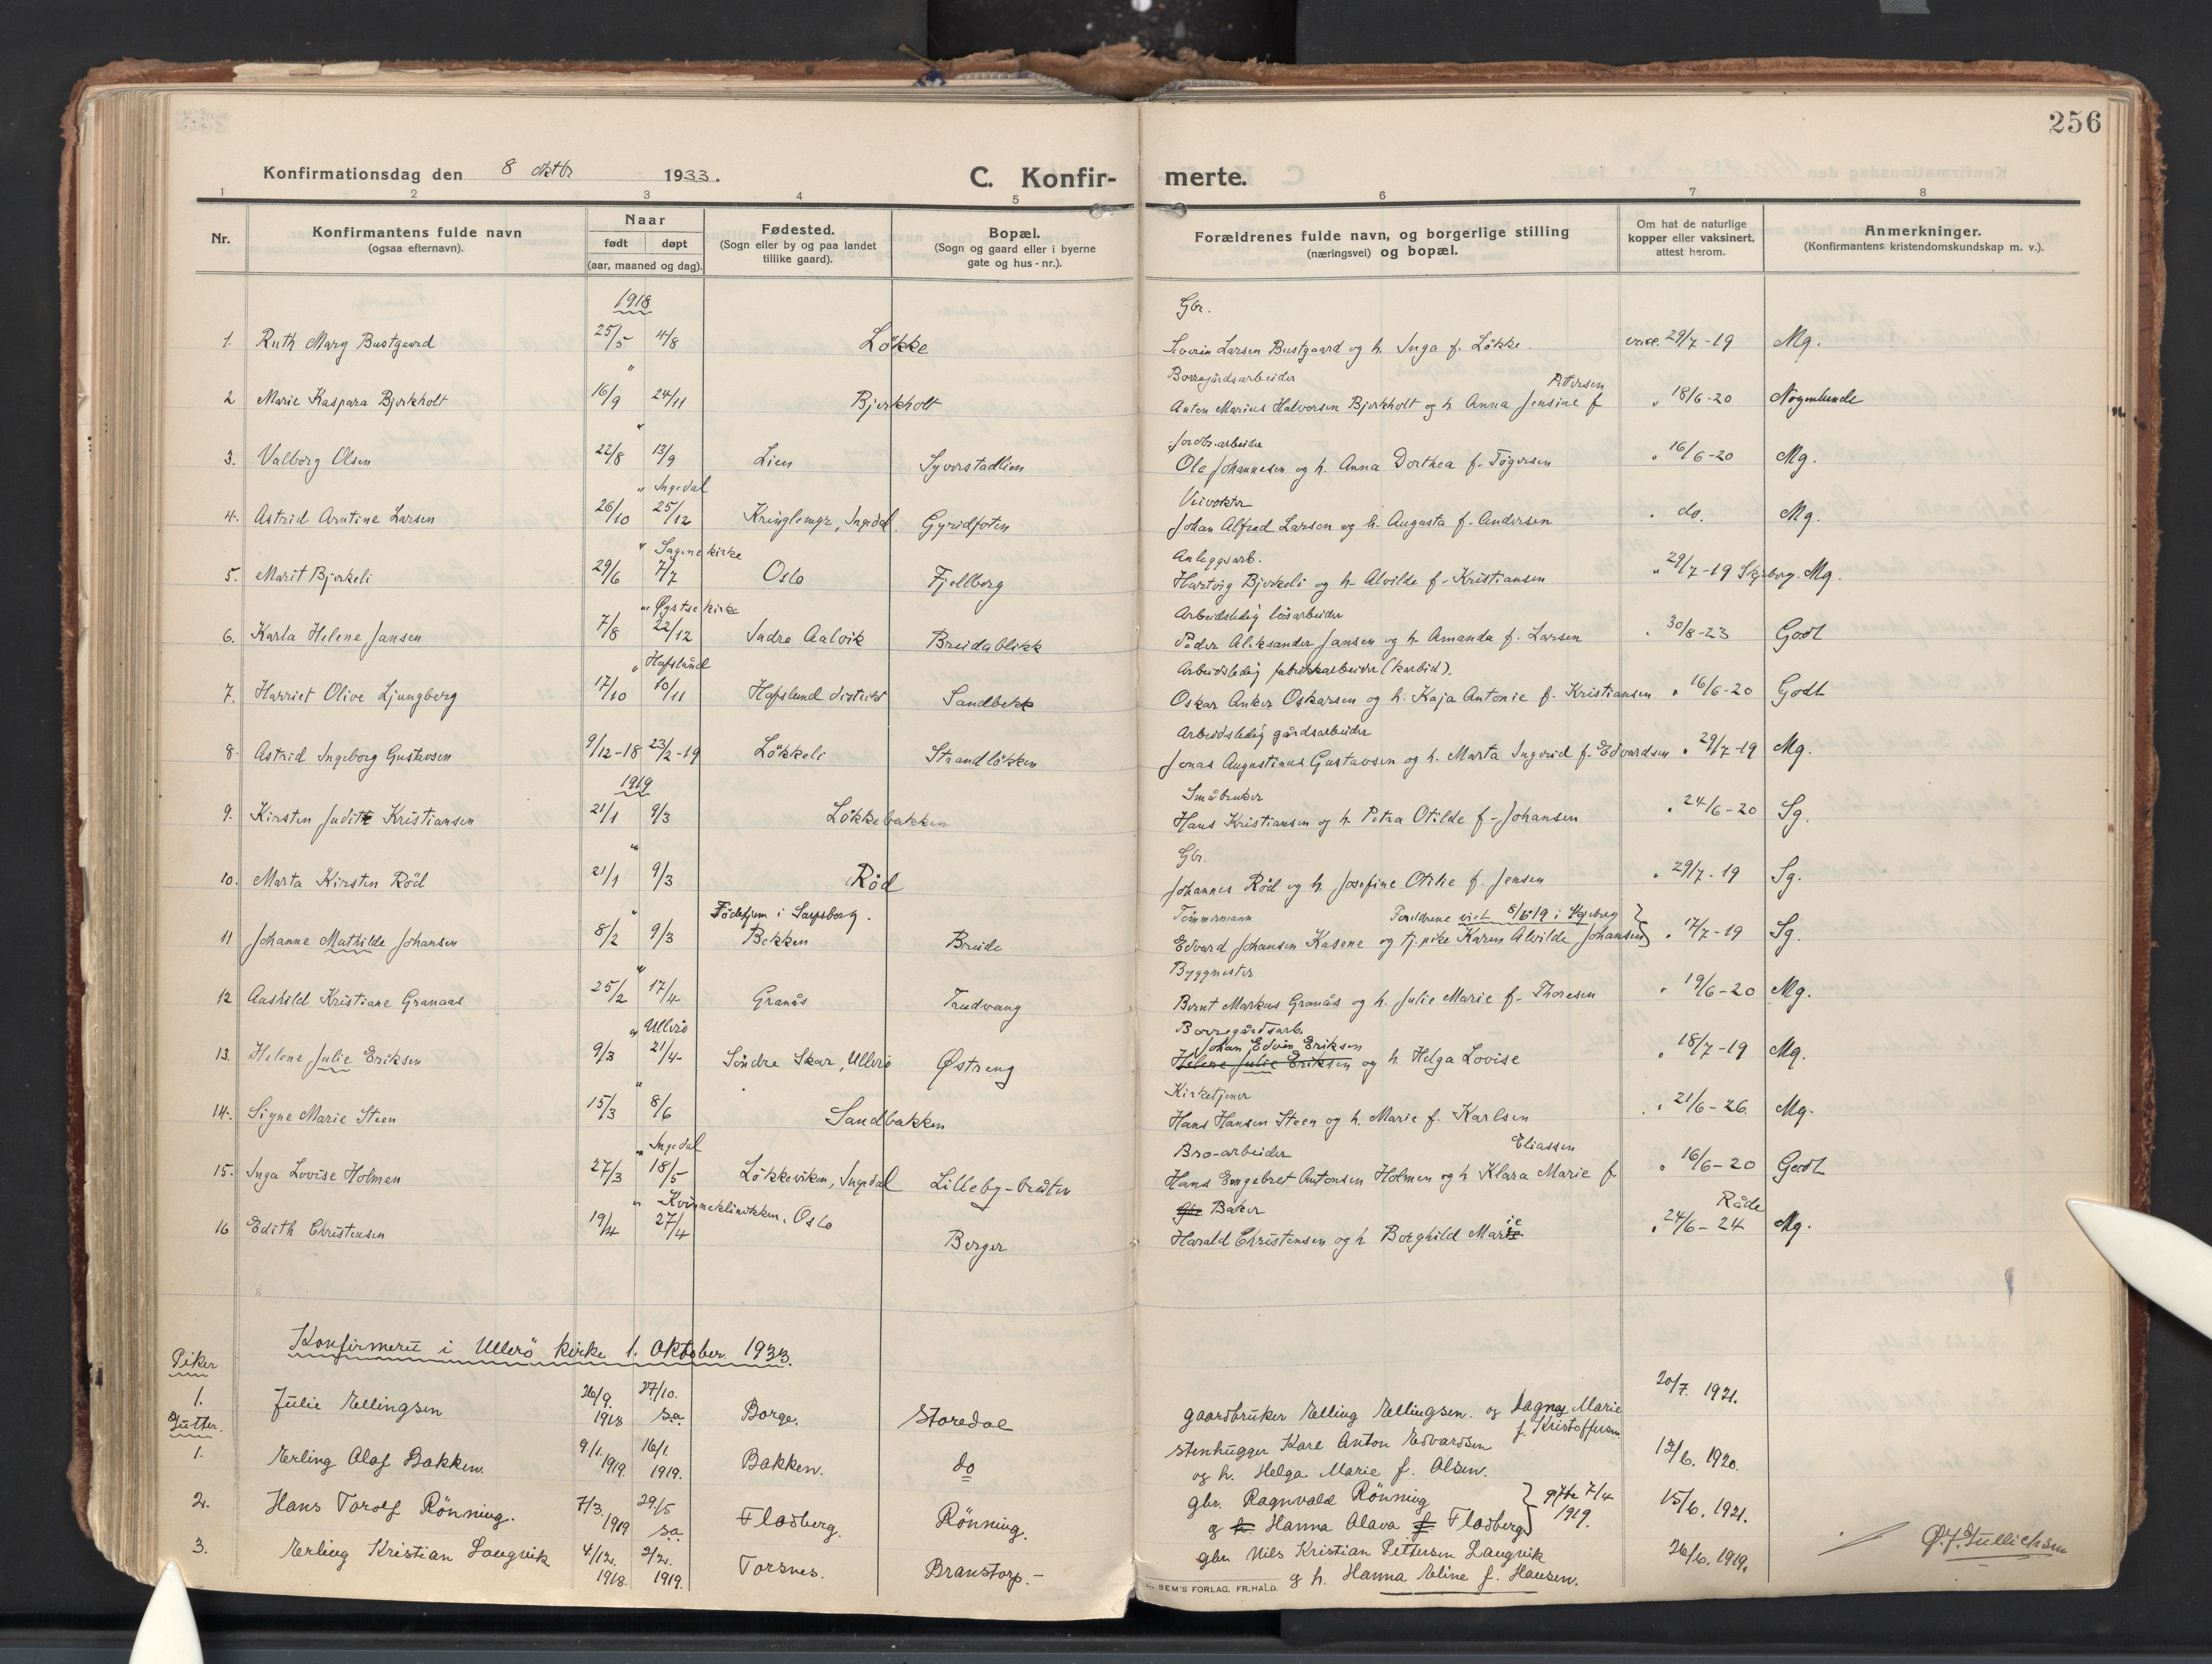 256
Konfirmationsdag den 8 oktbr 1933.
C. Konfir- merte.
1 2 3 4 5 6 7 8
Nr.
Konfirmantens fulde navn
(ogsaa efternavn).
Naar
født døpt
(aar, maaned og dag).
Fødested.
(Sogn eller by og paa landet
tillike gaard).
Bopæl.
(Sogn og gaard eller i byerne
gate og hus-nr.).
Forældrenes fulde navn, og borgerlige stilling
(næringsvei) og bopæl.
Om hat de naturlige
kopper eller vaksinert,
attest herom.
Anmerkninger.
(Konfirmantens kristendomskundskap m. v.).
1918 Gbr.
1. Ruth Mary Bustgaard 25/5 4/8 Løkke Severin Larsen Bustgaard og h. Inga f. Løkke. vacc. 29/7-19 Mg.
" Borregårdsarbeider Pettersen
2 Marie Kaspara Bjerkholt 16/9 24/11 Bjerkholt Anton Marius Halvorsen Bjerkholt og h. Anna Jensine f " 18/6-20 Nogenlunde
" Jordbr.arbeider
3. Valborg Olsen 22/8 13/9 Lien Syverstadlien Ole Johannesen og h. Anna Dorthea f. Tøgersen " 16/6-20 Mg.
" Ingedal Veivokter
4. Astrid Arntine Larsen 26/10 25/12 Kringlemyr, Ingedal. Gyridfoten Johan Alfred Larsen og h. Augusta f. Andersen " do. Mg.
" Sagene kirke Anleggsarb.
5. Marit Bjerkeli 29/6 7/7 Oslo Fjellborg Hartvig Bjerkeli og h. Alvilde f. Kristiansen " 29/7-19 Skjeberg. Mg.
" Øystse kirke Arbeidsledig løsarbeider
6. Karla Helene Jansen 7/8 22/12 Indre Aalvik Breidablikk Peder Aleksander Jansen og h. Amanda f. Larsen " 30/8-23 Godt
" Hafslund Arbeidsledig fabrikkarbeider (karbid).
7. Harriet Olive Ljungberg 17/10 10/11 Hafslund distrikt Sandbekk Oskar Anker Oskarsen og h. Kaja Antonie f. Kristiansen " 16/6-20 Godt
Arbeidsledig gårdsarbeider
8. Astrid Ingeborg Gustavsen 9/12-18 23/2-19 Løkkeli Strandløkken Jonas Augustinus Gustavsen og h. Marta Ingerid f. Edvardsen " 29/7-19 Mg.
1919 Småbruker
9. Kirsten Judith Kristiansen 21/1 9/3 Løkkebakken Hans Kristiansen og h. Petra Otilde f. Johansen " 24/6-20 Sg.
" Gbr.
10. Marta Kirsten Rød 21/1 9/3 Rød Johannes Rød og h. Josefine Otilie f. Jensen " 29/7-19 Sg.
" Fødehjem i Sarpsborg. Tømmermann Foreldrene viet 8/6 19 i Skjeberg
11 Johanne Mathilde Johansen 8/2 9/3 Bekken Breide Edvard Johansen Kasene og tj.pike Karen Alvilde Johansen " 17/7-19 Sg.
" Byggmester
12 Aashild Kristiane Granaas 25/2 17/4 Granås Tandvang Bernt Markus Granås og h. Julie Marie f. Thoresen " 19/6-20 Mg.
" Ullerø Borregårdsarb.
Johan Edvin Eriksen
13. Helene Julie Eriksen 9/3 21/4 Søndre Skar, Ullerø Østreng Helene Julie Eriksen og h. Helga Lovise " 18/7-19 Mg.
" Kirketjener
14. Signe Marie Steen 15/3 8/6 Sandbakken Hans Hansen Steen og h. Marie f. Karlsen " 21/6-26 Mg.
" Ingedal Bro-arbeider Eliassen
15. Inga Lovise Holmen 27/3 18/5 Løkkeviken, Ingedal Lilleby-bråten Hans Engebret Antonsen Holmen og h Klara Marie f " 16/6-20 Godt
" Kvinneklinikken, Oslo Gbr. Baker Råde
16 Edith Christensen 19/4 27/4 Berger Harald Christensen og h Borghild Marie " 24/6-24 Mg.
Konfirmert i Ullerø kirke 1. oktober 1933.
Piker
1. Julie Ellingsen 26/9. 1918 27/10. s.a. Borge. Storedal gaardbruker Elling Ellingsen. og Dagny Marie f. Kristoffersen 20/7. 1921.
Gutter.
1. Erling Olaf Bakken. 9/1. 1919. 16/1. 1919. Bakken. do Stenhugger Karl Anton Edvardsen
og h. Helga Marie f. Olsen. 12/6. 1920.
2. Hans Torolf Rønning. 7/3. 1919 29/5 s.a. Fladberg. Rønning. gbr. Ragnvald Rønning
og h. Hanna Olava f. Fladberg gifte 7/4 1919. 15/6. 1921.
3. Erling Kristian Langvik 4/12. 1918. 2/2. 1919. Torsnes. Branstorp.- gbr Nils Kristian Pettersen Langvik
og h. Hanna Eline f. Hansen. 26/6. 1919.
SEM'S FORLAG. FR.HALD.